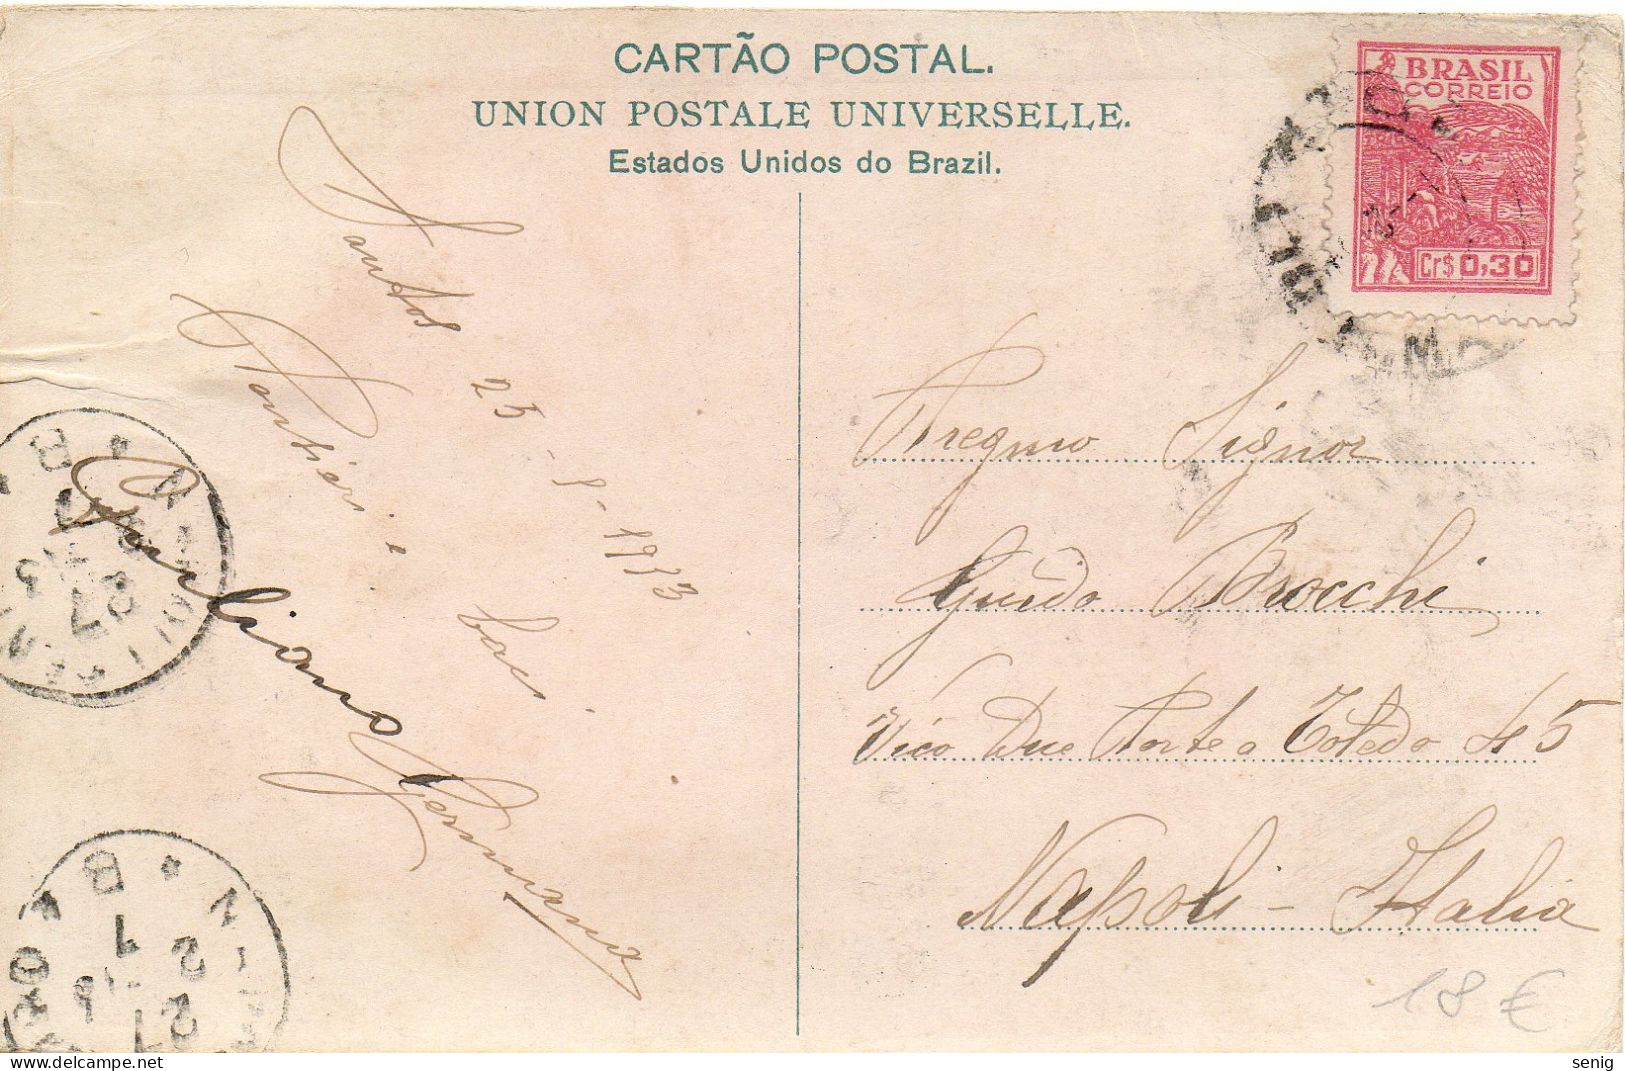 CARTÃO POSTAL.
UNION POSTALE UNIVERSELLE.
Estados Unidos do Brazil.
BRASIL
CORREIO
Cr$ 0,30
Santos 25-8-1933
baci
Germana
Pregmo Signor
Guido Brocchi
Vico Due Porte a Toledo 45
Napoli - Italia
18 €
senig